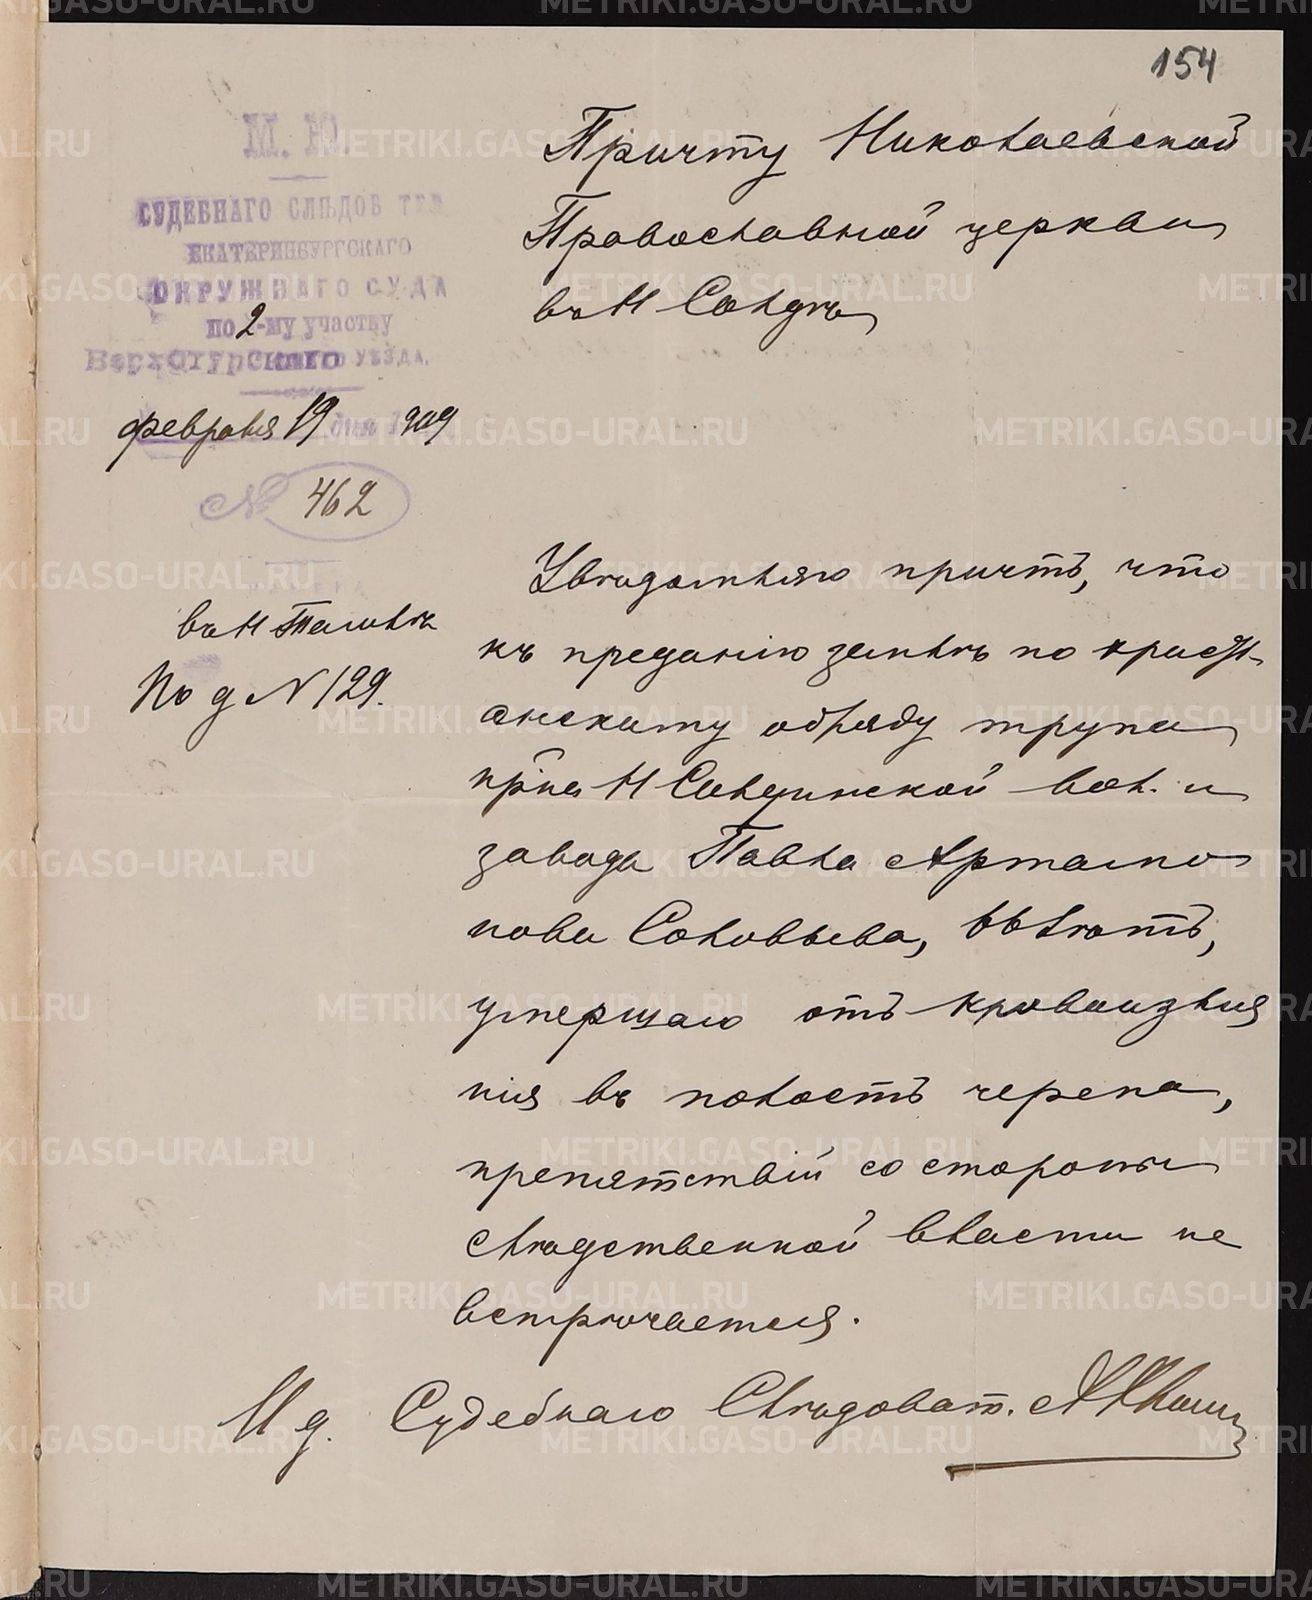 154
М. Ю.
СУДЕБНАГО СЛѢДОВТЕЛ
ЕКАТЕРИНБУРГСКАГО
ОКРУЖНАГО СУДА
по 2-му участку
Верхотурскаго УѢЗДА.
февраля 19 дня 1909
№ 462
въ Н Тагилѣ
По д N 129.
Причту Николаевской
Православной церкви
въ Н Салдѣ
Увѣдомляю причтъ, что
къ преданію землѣ по христі-
анскому обряду трупа
кр-на Н Салдинской вол. и
завода Павла Артамо
нова Соловьева, 66 лѣтъ,
умершаго отъ кровоизлія
нія въ полость черепа,
препятствій со стороны
слѣдственной власти не
встрѣчается.
И д. Судебнаго Слѣдоват.
METRIKI.GASO-URAL.RU